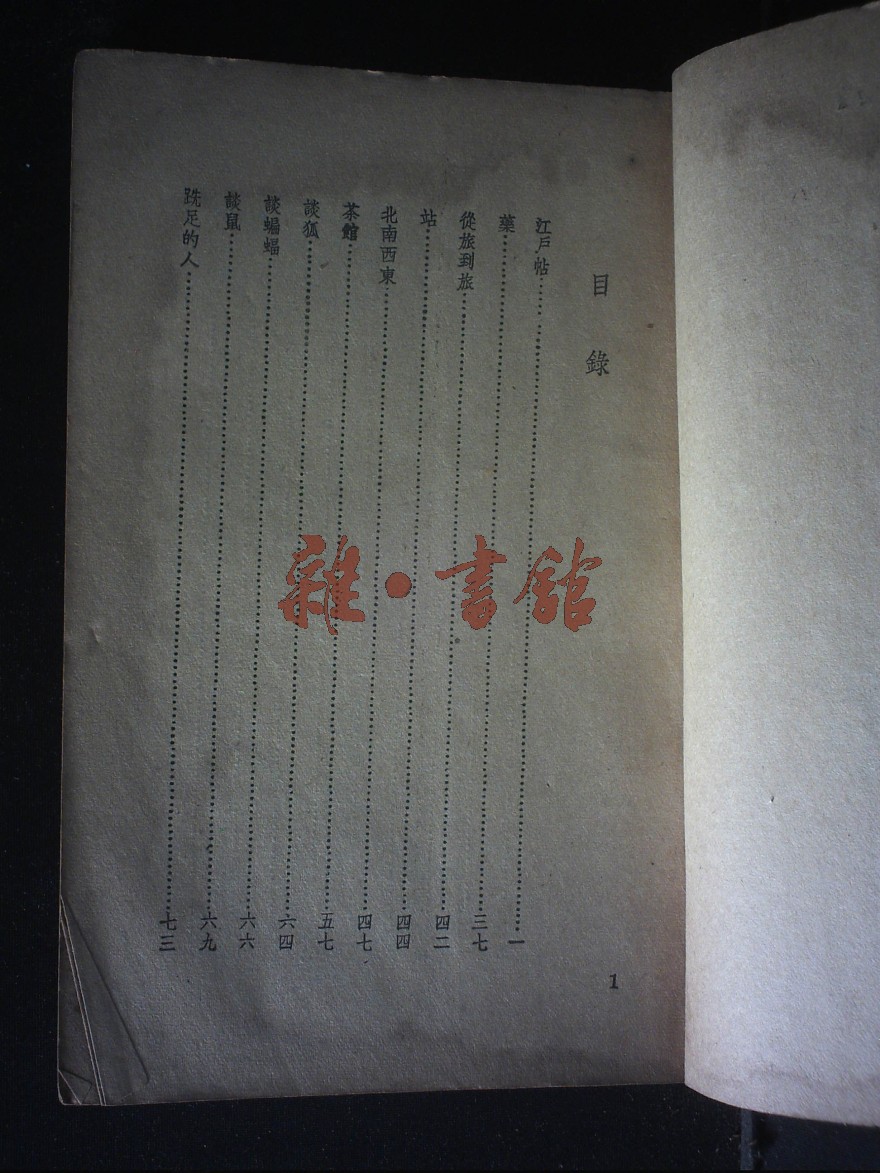 目錄
江戶帖……一
藥……三七
從旅到旅……四二
站……四四
北南西東……四七
茶館……五七
談狐……六四
談蝙蝠……六六
談鼠……六九
跣足的人……七三
1
雜·書館